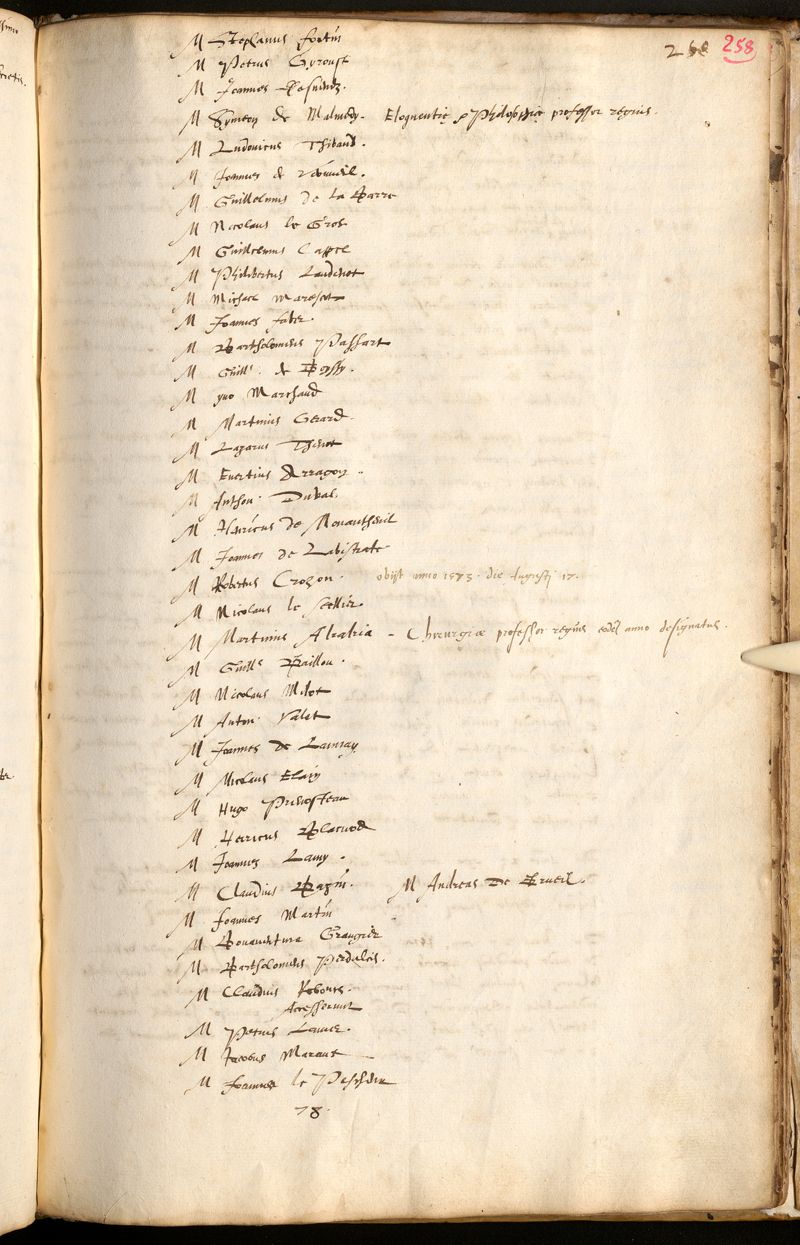 258 258
M Stephanus fortin
M Petrus Gyroust
M Joannes
M Symeon de Malmedy. Eloquentię & Philosophię professor regius.
M Ludovicus Thibault.
M Joannes de
M Guillelmus de la Barre
M Nicolaus le Gros
M Guillelmus Cappel
M Philibertus
M Michael Marescot
M Joannes faber.
M Bartholomeus Passart
M Guill. de
M yvo Marchand
M Martinus Gerard
M Lazarus Thenot
M Evertius Arragon
M Anthon. Duval.
M Henricus de Monantheuil
M Joannes de Labistrate
M Robertus Crozon. obijt anno 1573. die Augusti 17.
M Nicolaus le Sellier
M Martinus Akakia - Chirurgiæ professor regius eodem anno designatus.
M Guill. Baillou.
M Nicolaus Milot
M Anton. Valet
M Joannes de Launay
M Nicolaus Elain
M Hugo Prevosteau
M Henricus Blacvod
M Joannes Lamy.
M Claudius Bazin. M Andreas De Brueil.
M Joannes Martin
M Bonaventura Grangier
M Bartholomeus Perdulcis.
M Claudius
Accesserunt
M Petrus
M Jacobus Marant
M Joannes le
78.